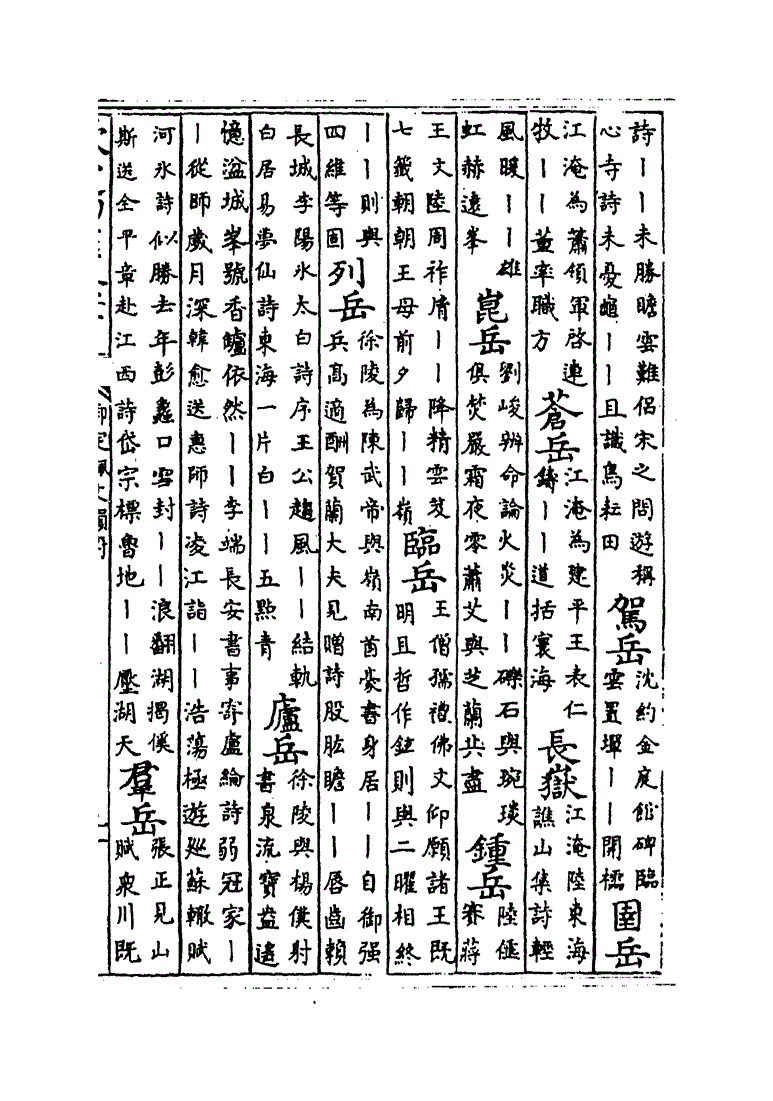 詩——未勝瞻雲難侶宋之問遊稱
心寺詩未憂龜——且識鳥耘田
駕岳
沈約金庭館碑臨
雲置墠——開櫺
圍岳
江淹為蕭領軍啓連
牧——董率職方
蒼岳
江淹為建平王表仁
鑄——道括寰海
長嶽
江淹陸東海
譙山集詩輕
風暖——雄
虹赫遠峯
崑岳
劉峻辨命論火炎——礫石與琬琰
俱焚嚴霜夜零蕭艾與芝蘭共盡
鍾岳
陸倕
賽蔣
王文陸周祚膺——降精雲笈
七籤朝朝王母前夕歸——嶺
臨岳
王僧孺禮佛文仰願諸王既
明且哲作鉉則與二曜相終
——則與
四維等固
列岳
徐陵為陳武帝與嶺南酋豪書身居——自御强
兵高適酬賀蘭大夫見贈詩股肱瞻——唇齒賴
長城李陽氷太白詩序王公趨風——結軌
白居易夢仙詩東海一片白——五點青
廬岳
徐陵與楊僕射
書泉流寶盌遙
憶湓城峯號香鑪依然——李端長安書事寄盧綸詩弱冠家—
—從師歲月深韓愈送惠師詩凌江詣——浩蕩極遊巡蘇轍賦
河氷詩似勝去年彭蠡口雪封——浪翻湖揭傒
斯送全平章赴江西詩岱宗標魯地——壓湖天
羣岳
張正見山
賦衆川既
御定佩文韻府